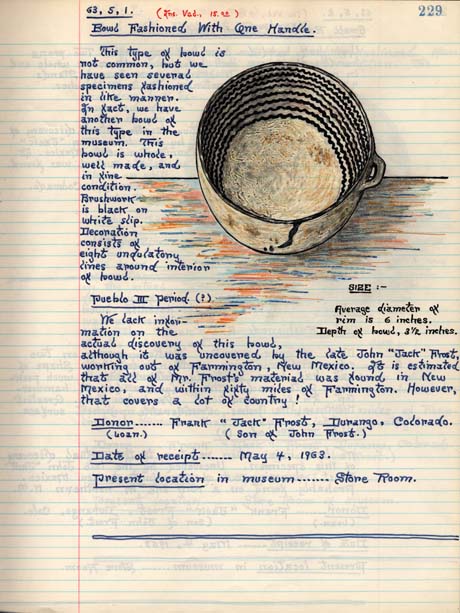 63, 5, 1.
(Ins. Val., 15.00)
229
Bowl Fashioned With One Handle.
This type of bowl is
not common, but we
have seen several
specimens fashioned
in like manner.
In fact, we have
another bowl of
this type in the
museum. This
bowl is whole,
well made, and
in fine
condition.
Brushwork
is black on
white slip.
Decoration
consists of
eight undulatory
lines around interior
of bowl.
SIZE :-
Average diameter of
rim is 6 inches.
Depth of bowl, 3½ inches.
Pueblo III Period (?).
We lack infor-
mation on the
actual discovery of this bowl,
although it was uncovered by the late John "Jack" Frost,
working out of Farmington, New Mexico. It is estimated
that all of Mr. Frost's material was found in New
Mexico, and within sixty miles of Farmington. However,
that covers a lot of country !
Donor....... Frank "Jack" Frost, Durango, Colorado.
(Loan.) (Son of John Frost.)
Date of receipt....... May 4, 1963.
Present location in museum....... Store Room.